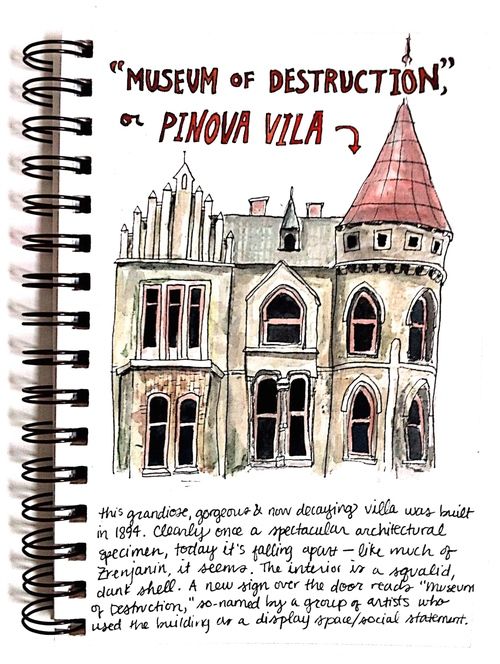 "MUSEUM OF DESTRUCTION,"
or PINOVA VILA
this grandiose, gorgeous & now decaying villa was built
in 1894. Clearly once a spectacular architectural
specimen, today it's falling apart — like much of
Zrenjanin, it seems. The interior is a squalid,
dank shell. A new sign over the door reads "Museum
of Destruction," so-named by a group of artists who
used the building as a display space/social statement.